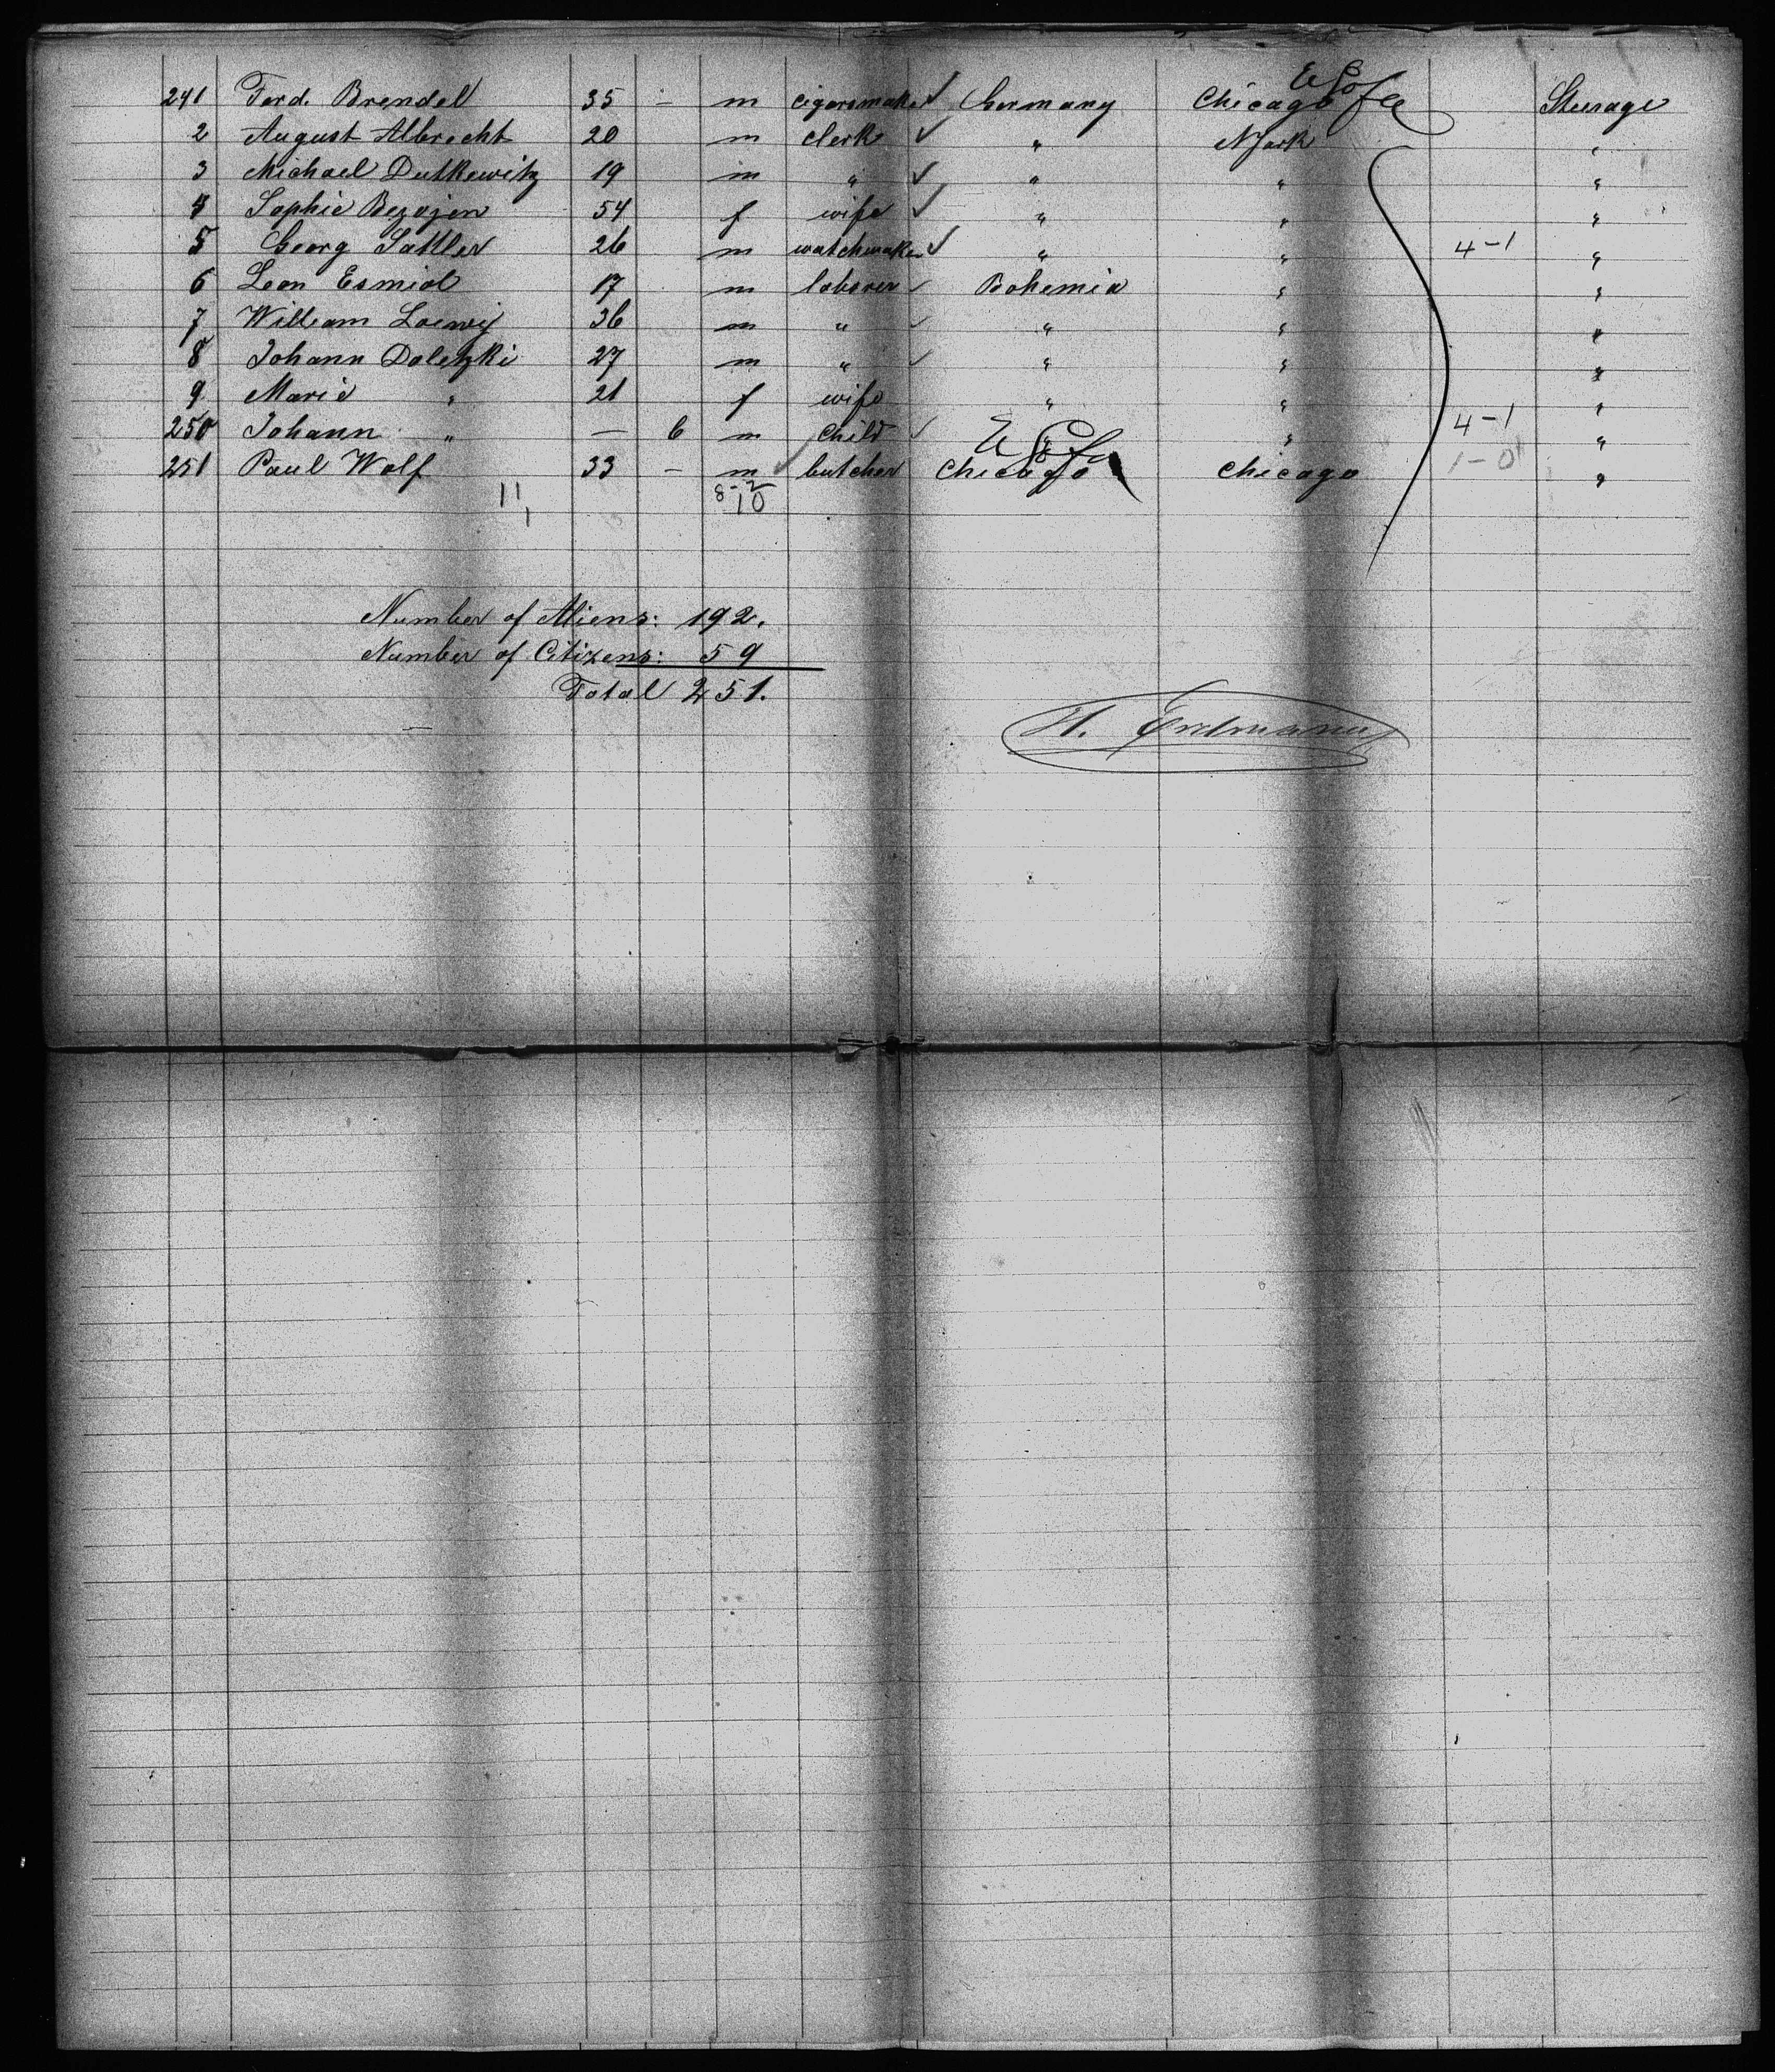 241 Ferd. Brendel 35 – m cigarsmaker ✓ Germany Chicago Steerage
2 August Albrecht 20 m clerk ✓ " N York "
3 Michael Dutkewitz 19 m " ✓ " " "
4 Sophie Bezojen 54 f wife ✓ " " "
5 Georg Sattler 26 m watchmaker ✓ " " 4-1 "
6 Leon Esmiol 17 m laborer ✓ Bohemia " "
7 William Loewy 36 m " ✓ " " "
8 Johann Doletzki 27 m " ✓ " " "
9 Marie " 21 f wife " " "
250 Johann " — 6 m child ✓ " " 4-1 "
251 Paul Wolf 33 – m ✓ butcher Chicago Chicago 1-0 "
11 8-2
1 10
Number of Aliens: 192.
Number of Citizens: 59
Total 251.
H. Erdmann